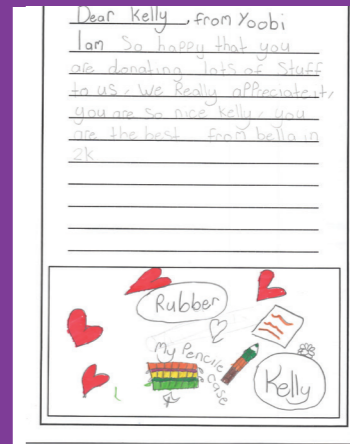 Dear Kelly, from Yoobi
I am So happy that you
are donating lots of Stuff
to us, We Really appreciate it,
you are so nice Kelly, you
are the best from bella in
2k
Rubber
My Pencile
case
Kelly